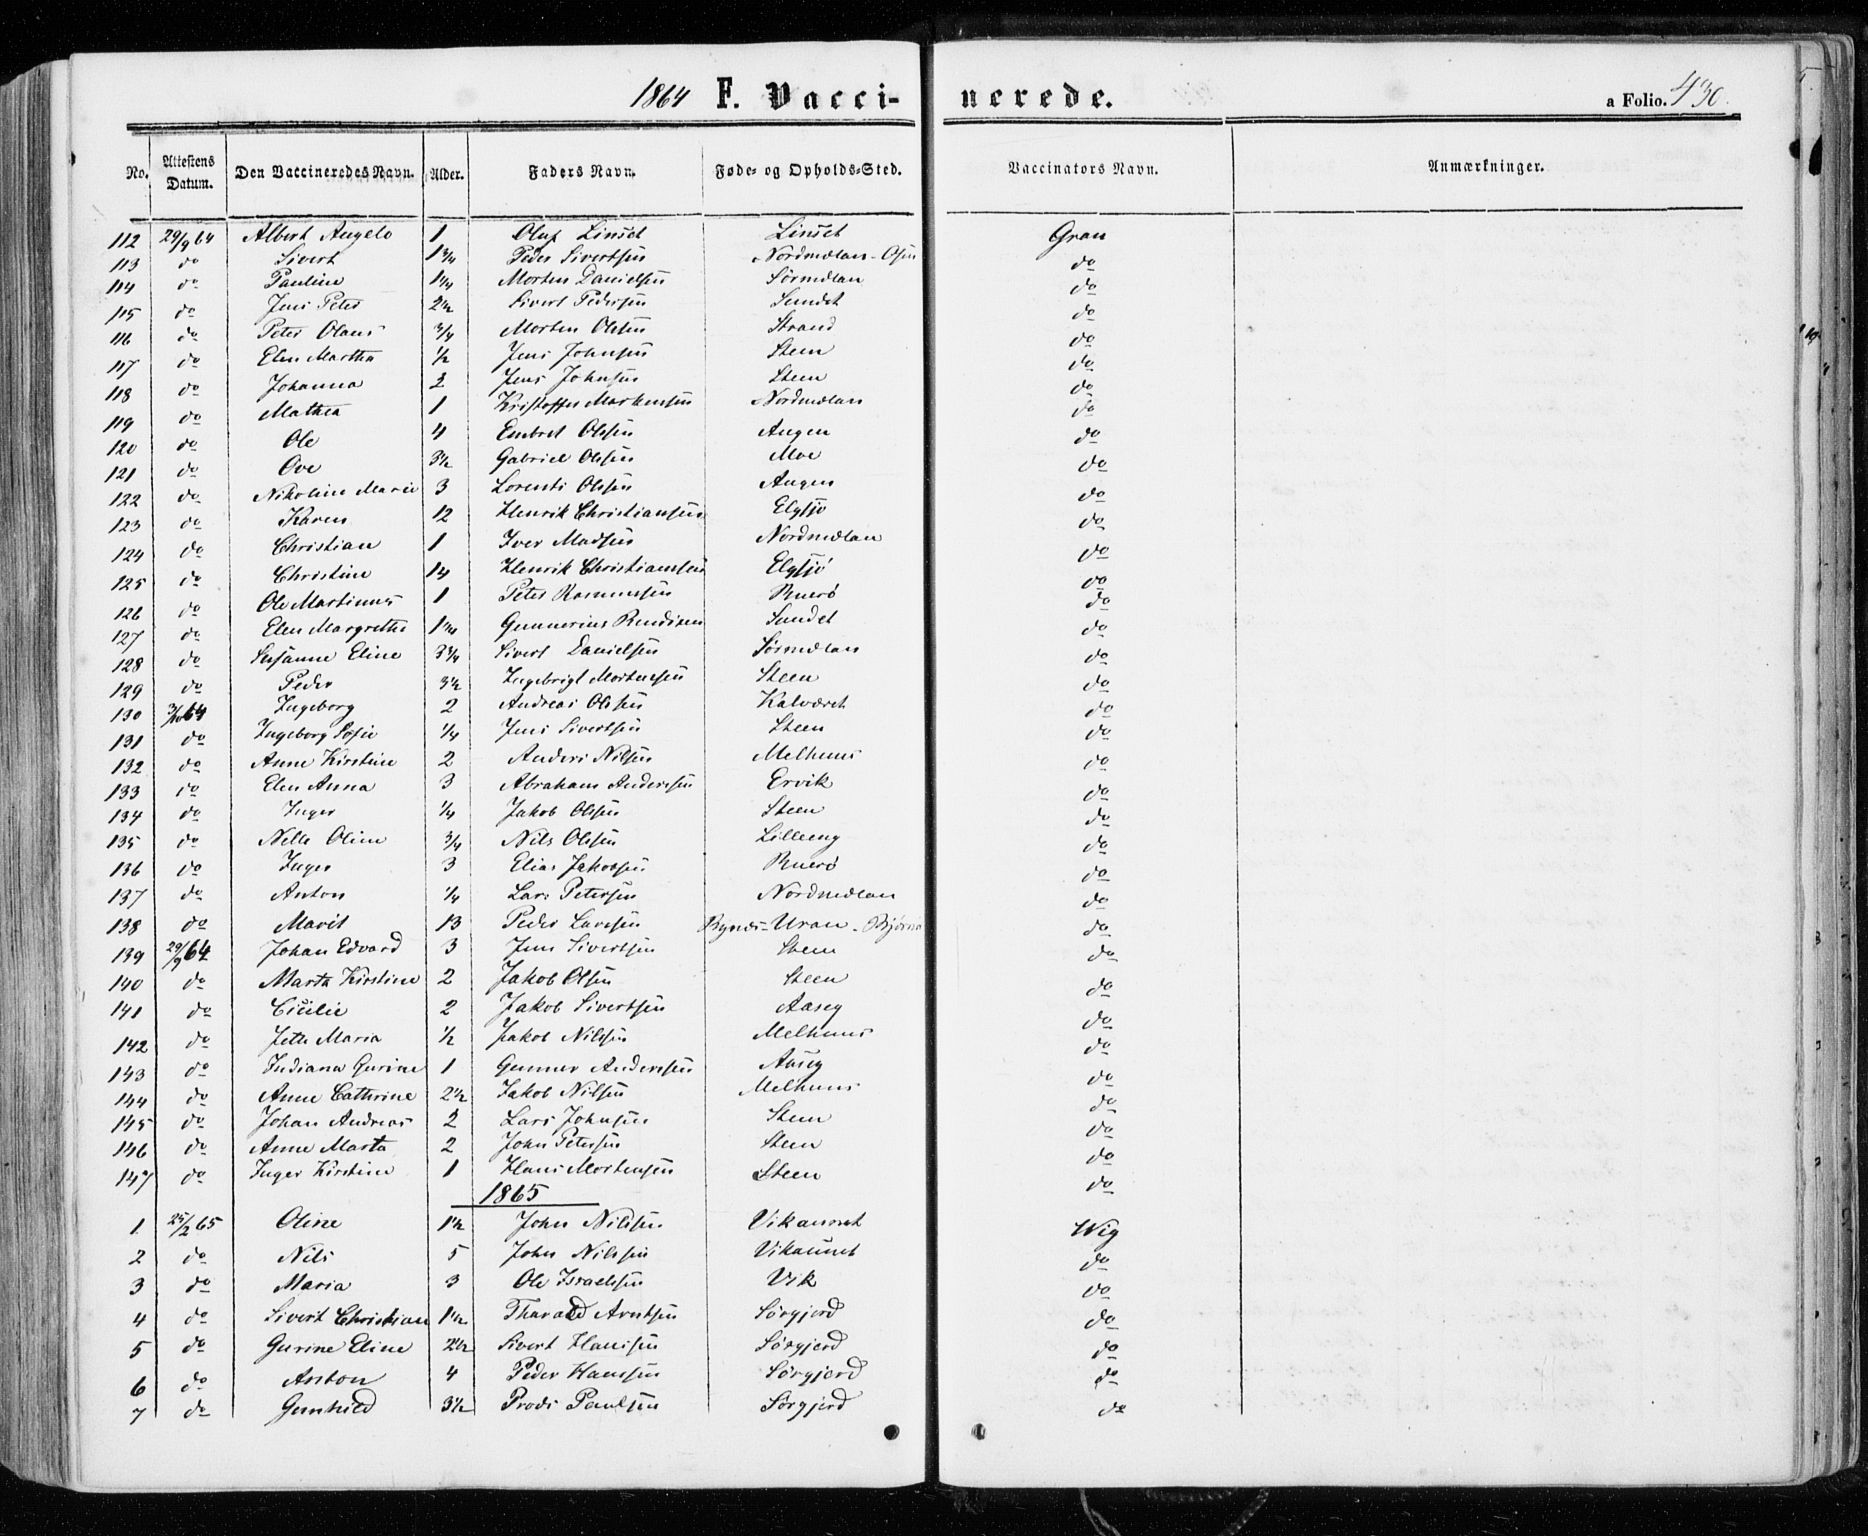 1864 F. Vaccinerede. a Folio. 430.
No. Attestens Datum. Den Vaccineredes Navn. Alder. Faders Navn. Føde- og Opholds-Sted. Vaccinators Navn. Anmærkninger.
112 29/9 64 Albert Angelo 1 Oluf Linset Linset Gran
113 do Sivert 1 3/4 Peder Sivertsen Nordmelan - Osen do
114 do Pauline 1 1/4 Morten Danielsen Sørmelan do
115 do Jens Peter 2 1/2 Sivert Pedersen Sundet do
116 do Peter Olaus 3/4 Morten Olsen Strand do
117 do Elen Martha 1/2 Jens Johnsen Steen do
118 do Johanna 2 Jens Johnsen Steen do
119 do Mathea 1 Kristoffer Mortensen Nordmelan do
120 do Ole 4 Embret Olssen Augen do
121 do Ove 3 1/2 Gabriel Olssen Moe do
122 do Nikoline Marie 3 Lorents Olssen Augen do
123 do Karen 12 Henrik Christiansen Elgsjø do
124 do Christian 1 Iver Madsen Nordmelan do
125 do Christine 14 Henrik Christiansen Elgsjø do
126 do Ole Martinus 1 Peter Rasmussen Ruerø do
127 do Elen Margrethe 1 3/4 Gunnerius Bendixen Sundet do
128 do Susanne Eline 3 3/4 Sivert Danielsen Sørmelan do
129 do Peder 3 1/2 Ingebrigt Mortensen Steen do
130 3/10 64 Ingeborg 2 Andreas Olssen Kalværet do
131 do Ingeborg Sofie 1/4 Jens Sivertsen Steen do
132 do Anne Kirstine 2 Anders Nilsen Melhuus do
133 do Elen Anna 3 Abraham Anderssen Ervik do
134 do Inger 1/4 Jakob Olssen Steen do
135 do Nelle Oline 3/4 Nils Olssen Lilleeng do
136 do Inger 3 Elias Jakobsen Ruerø do
137 do Anton 1/4 Lars Petersen Nordmelan do
138 do Marit 13 Peder Larssen Bynes-Uran - do
139 29/9 64 Johan Edvard 3 Jens Sivertsen Steen do
140 do Marta Kirstine 2 Jakob Olsen Steen do
141 do Cicilie 2 Jakob Sivertsen Aaseg do
142 do Jette Maria 1/2 Jakob Nilssen Melhuus do
143 do Indiana Gurine 1 Gunner Anderssen Aaseg do
144 do Anne Cathrine 2 1/2 Jakob Nilsen Melhuus do
145 do Johan Andreas 2 Lars Johnsen Steen do
146 do Anne Marta 2 John Petersen Steen do
147 do Inger Kirstine 1 Hans Mortensen Steen do
1865
1 25/2 65 Oline 1 1/2 John Nilssen Vikauset Wig
2 do Nils 5 John Nilssen Vikauset do
3 do Maria 3 Ole Israelsen Vik do
4 do Sivert Christian 1 1/2 Tharald Arntsen Sørgjerd do
5 do Gurine Eline 2 1/2 Sivert Hanssen Sørgjerd do
6 do Anton 4 Peder Hanssen Sørgjerd do
7 do Gunhild 3 1/2 Paulsen Sørgjerd do